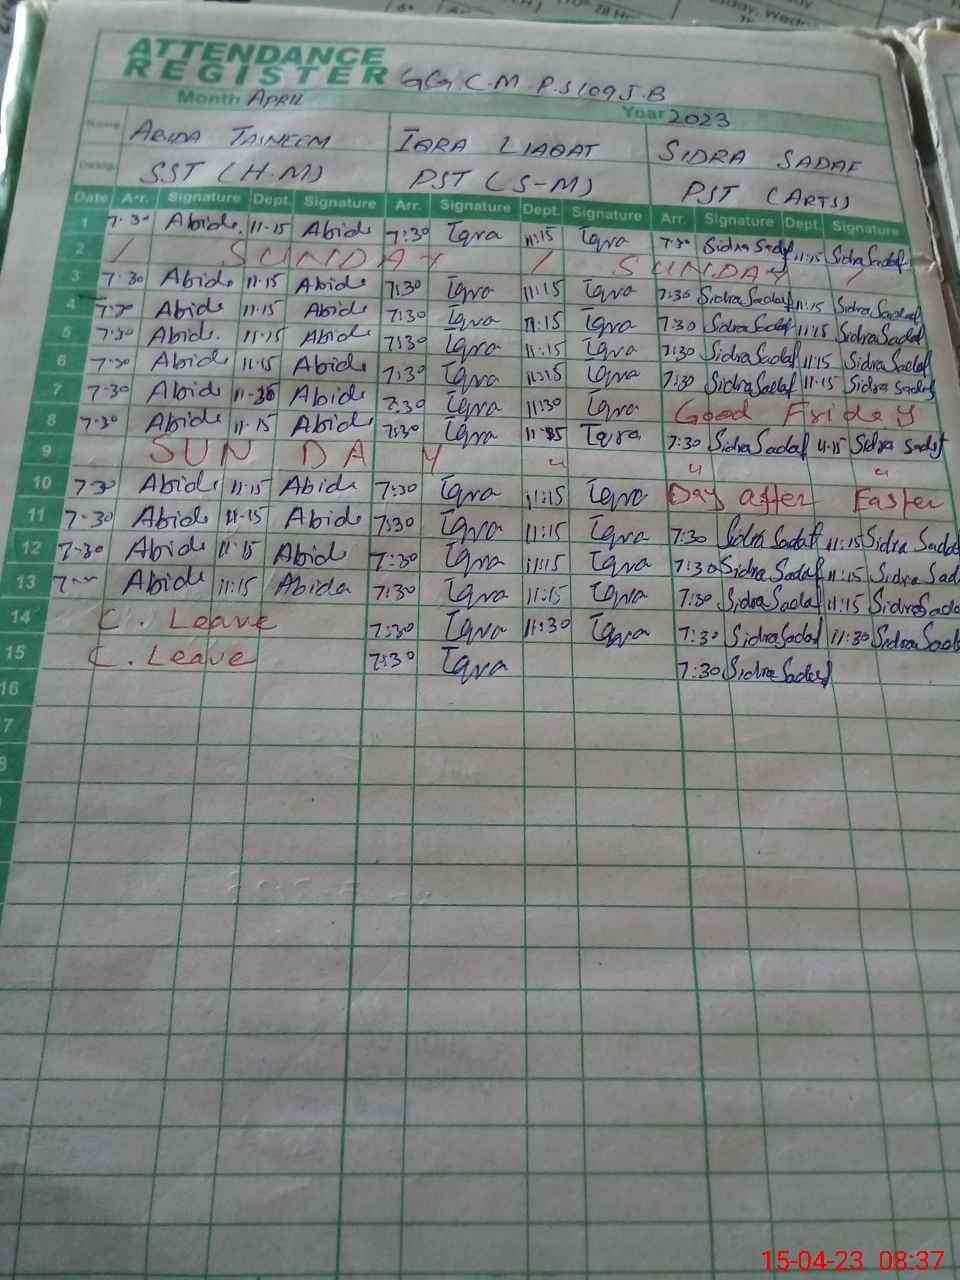 ATTENDANCE
REGISTER GG.C.M.P.S 109 J.B
Month APRIL Year 2023
Name ABIDA TASNEEM IQRA LIAQAT SIDRA SADAF
Desig. SST (H.M) PST (S-M) PST (ARTS)
Date Arr. Signature Dept. Signature Arr. Signature Dept. Signature Arr. Signature Dept. Signature
1 7.30 Abida 11-15 Abida 7:30 Iqra 11:15 Iqra 7:30 Sidra Sadaf 11:15 Sidra Sadaf
2 / SUNDAY / SUNDAY /
3 7.30 Abida 11.15 Abida 7:30 Iqra 11:15 Iqra 7:30 Sidra Sadaf 11:15 Sidra Sadaf
4 7.30 Abida 11.15 Abida 7:30 Iqra 11:15 Iqra 7:30 Sidra Sadaf 11:15 Sidra Sadaf
5 7.30 Abida. 11-15 Abida 7:30 Iqra 11:15 Iqra 7:30 Sidra Sadaf 11:15 Sidra Sadaf
6 7.30 Abida 11.15 Abida 7:30 Iqra 11:15 Iqra 7:30 Sidra Sadaf 11-15 Sidra Sadaf
7 7.30 Abida Abida 7:30 Iqra 11:30 Iqra Good Friday
8 7.30 Abida 11.15 Abida 7:30 Iqra Iqra 7:30 Sidra Sadaf 11.15 Sidra Sadaf
9 SUN DAY " " "
10 7.30 Abida 11-15 Abida 7:30 Iqra 11:15 Iqra Day after Easter
11 7.30 Abida 11-15 Abida 7:30 Iqra 11:15 Iqra 7:30 Sidra Sadaf 11:15 Sidra Sadaf
12 7.30 Abida 11.15 Abida 7:30 Iqra 11:15 Iqra 7:30 Sidra Sadaf 11:15 Sidra Sad
13 Abida 11:15 Abida 7:30 Iqra 11:15 Iqra 7:30 Sidra Sadaf 11:15 Sidra Sada
14 C. Leave 7:30 Iqra 11:30 Iqra 7:30 Sidra Sadaf 11:30 Sidra Sada
15 C. Leave 7:30 Iqra 7:30 Sidra Sadaf
16
7
8
15-04-23 08:37